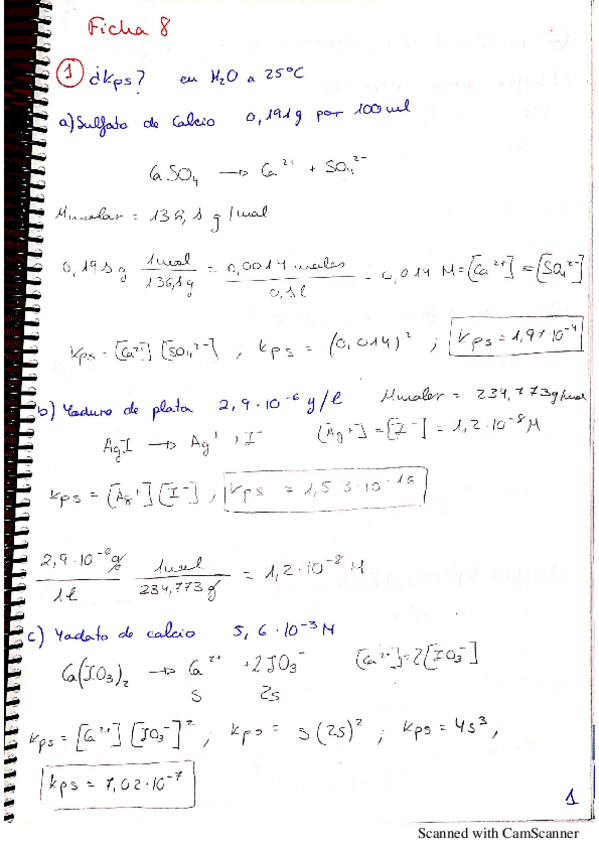 Ficha 8
① ¿Kps? en H₂O a 25°C
a) Sulfato de Calcio 0,191g por 100ml
CaSO₄ → Ca²⁺ + SO₄²⁻
Mmolar = 136,1 g/mol
0,191g 1mol/136,1g = 0,0014 moles/0,1l = 0,014 M = [Ca²⁺] = [SO₄²⁻]
Kps = [Ca²⁺] [SO₄²⁻] ; Kps = (0,014)² ; Kps = 1,97·10⁻⁴
b) Yoduro de plata 2,9·10⁻⁶ g/l Mmolar = 234,773g/mol
AgI → Ag⁺ + I⁻ [Ag⁺] = [I⁻] = 1,2·10⁻⁸ M
Kps = [Ag⁺] [I⁻] ; Kps = 1,53·10⁻¹⁶
2,9·10⁻⁶g/1l 1mol/234,773g = 1,2·10⁻⁸ M
c) Yodato de calcio 5,6·10⁻³ M
Ca(IO₃)₂ → Ca²⁺ + 2IO₃⁻ [Ca²⁺] = 2[IO₃⁻]
s 2s
Kps = [Ca²⁺] [IO₃⁻]² ; Kps = s(2s)² ; Kps = 4s³ ,
Kps = 7,02·10⁻⁷
1
Scanned with CamScanner